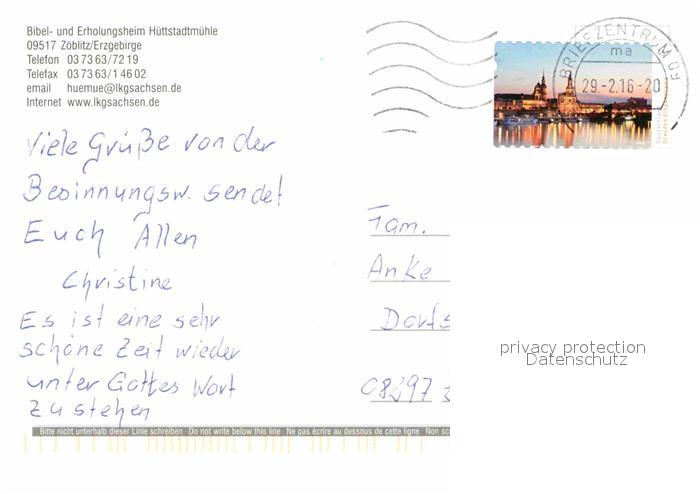 Bibel- und Erholungsheim Hüttstadtmühle
09517 Zöblitz/Erzgebirge
Telefon 03 73 63/72 19
Telefax 03 73 63/1 46 02
email huemue@lkgsachsen.de
Internet www.lkgsachsen.de
BRIEFZENTRUM 09
ma
29.-2.16-20
Viele Grüße von der
Besinnungsw. sendet
Euch Allen
Christine
Es ist eine sehr
schöne Zeit wieder
unter Gottes Wort
zu stehen
Fam.
Anke
Dorfs
08297
privacy protection
Datenschutz
Bitte nicht unterhalb dieser Linie schreiben Do not write below this line Ne pas écrire au dessous de cette ligne Non sc